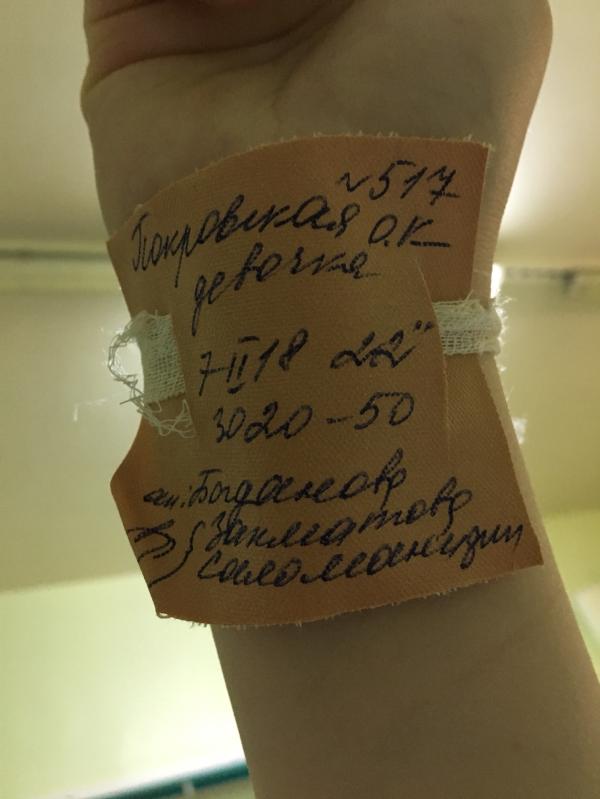 №517
Покровская О.К
девочка
7-II 18 22"
3020-50
ак: Богданова